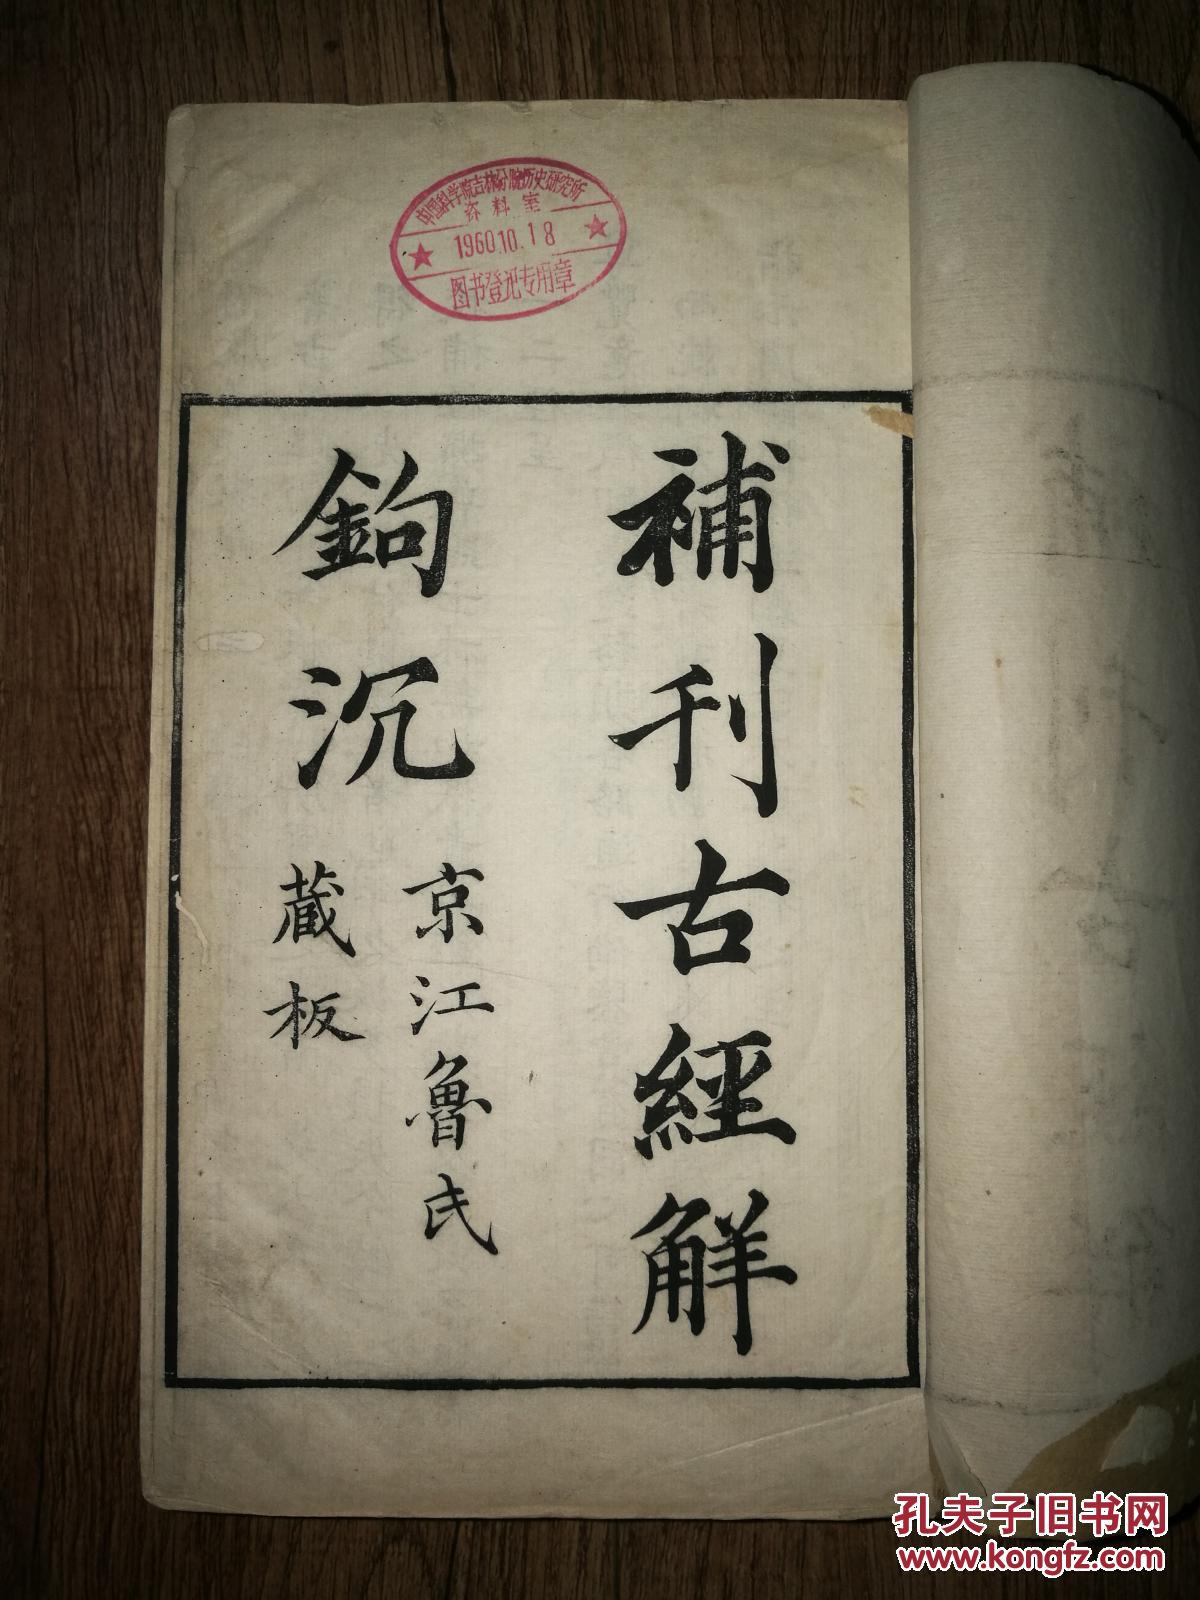 中国科学院吉林分院历史研究所
资料室
1960.10.18
图书登记专用章
補刊古經解
鉤沉
京江魯氏
蔵板
孔夫子旧书网
www.kongfz.com